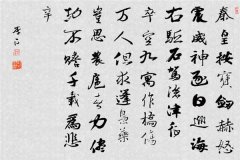 秦皇按寶劍赫怒
震威神逐日巡海
右駈石駕滄津征
卒空九寓作橋傷
萬人但求蓬島藥
豈思農扈春力盡
功不贍千載為悲
辛